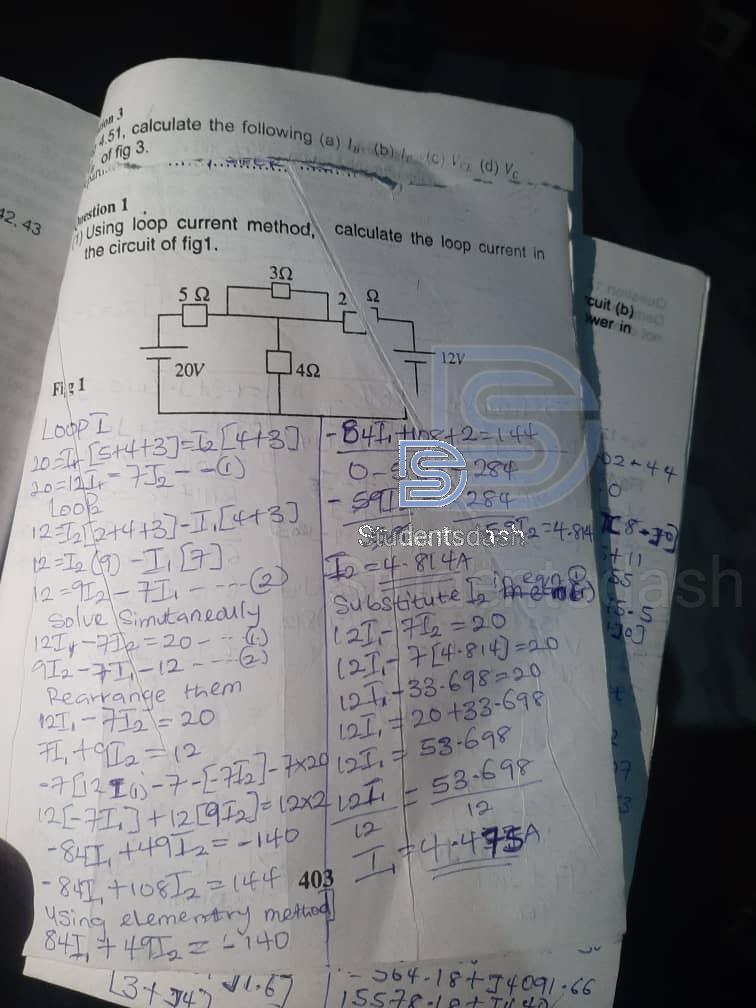 4.51, calculate the following (a) (b) (c) (d) Vc
of fig 3.
12.43
Question 1
(1) Using loop current method, calculate the loop current in
the circuit of fig1.
cuit (b)
wer in
3Ω
5 Ω
2 Ω
12V
20V
4Ω
Fig 1
Loop I
20=I1[5+4+3]=I2[4+3]
20=12I1-7I2---(1)
Loop2
12=I2[2+4+3]-I1[4+3]
12=I2(9)-I1[7]
12=9I2-7I1-----(2)
Solve Simutaneouly
12I1-7I2=20---(1)
9I2-7I1-12----(2)
Rearrange them
12I1-7I2=20
7I1+9I2=12
-7[12I(1)-7-[-7I2]-7×20
12[-7I1]+12[9I2]=12×2
-84I1+49I2=-140
-84I1+108I2=144
Using elementry method
84I1+49I2=-140
-84I1+108+2=144
284
284
59I2=4.814
Studentsdash
I2=4.814A
Substitute I2 in eqn (1)
12I1-7I2=20
12I1-7[4.814]=20
12I1-33.698=20
12I1=20+33.698
12I1=53.698
12I1=53.698
12 12
I1=4.475A
403
02+44
-564.18+J4091.66